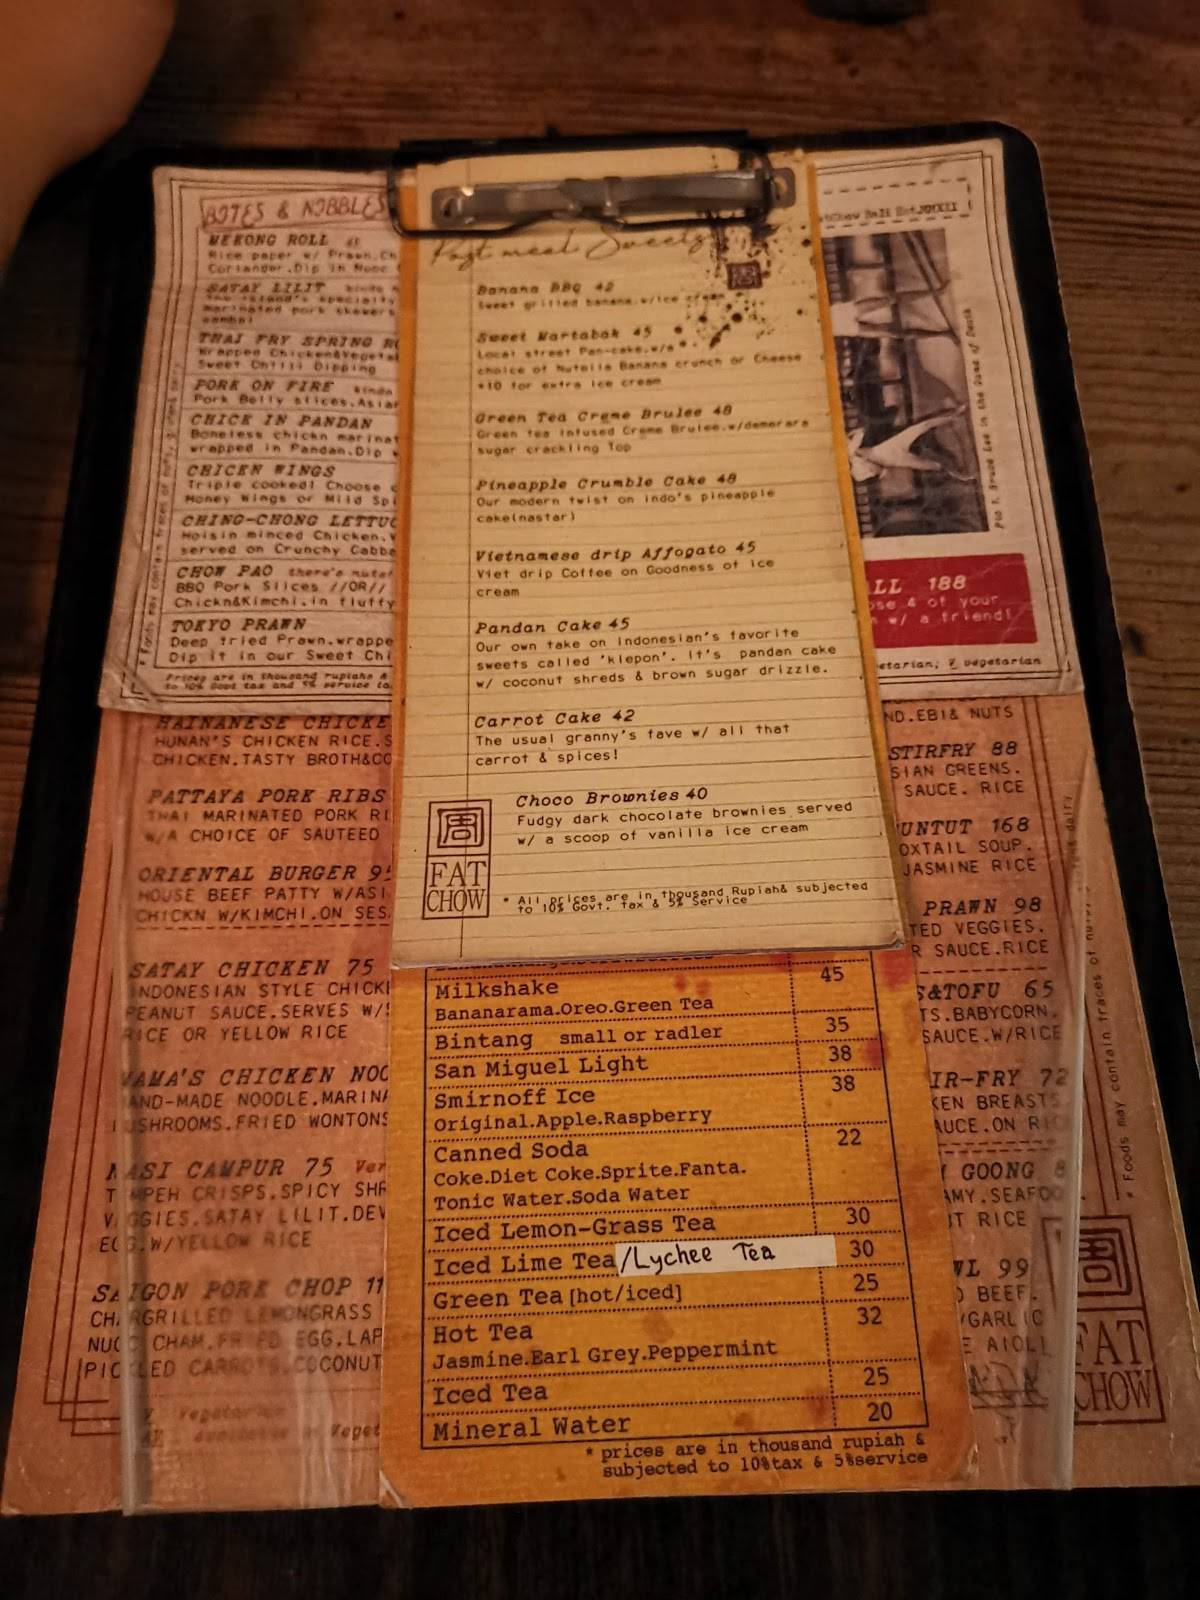 BITES & NIBBLES
MEKONG ROLL
Rice paper w/ Prawn.Ch
Coriander.Dip in Nuoc
SATAY LILIT
The island's specialty
marinated pork skewers
sambal
THAI FRY SPRING RO
Wrapped Chicken&Vegetab
Sweet Chilli Dipping
PORK ON FIRE kinda
Pork Belly slices.Asian
CHICK IN PANDAN
Boneless chickn marinat
wrapped in Pandan.Dip w
CHICKEN WINGS
Triple cooked! Choose
Honey Wings or Mild Spi
CHING-CHONG LETTUC
Hoisin minced Chicken.
served on Crunchy Cabba
CHOW PAO there's nuts!
BBQ Pork Slices //OR//
Chickn&Kimchi.in fluffy
TOKYO PRAWN
Deep fried Prawn.wrappe
Dip it in our Sweet Chi
Prices are in thousand rupiahs &
to 10% Govt tax and 5% service
Post meal Sweets
Banana BBQ 42
Sweet grilled banana.w/ice cream
Sweet Martabak 45
Local street Pan-cake.w/a
choice of Nutella Banana crunch or Cheese
+10 for extra ice cream
Green Tea Creme Brulee 48
Green tea infused Creme Brulee.w/demerara
sugar crackling top
Pineapple Crumble Cake 48
Our modern twist on Indo's pineapple
cake(nastar)
Vietnamese drip Affogato 45
Viet drip Coffee on Goodness of ice
cream
Pandan Cake 45
Our own take on Indonesian's favorite
sweets called 'klepon'. It's pandan cake
w/ coconut shreds & brown sugar drizzle.
Carrot Cake 42
The usual granny's fave w/ all that
carrot & spices!
Choco Brownies 40
Fudgy dark chocolate brownies served
w/ a scoop of vanilla ice cream
周
FAT
CHOW
* All prices are in thousand Rupiah& subjected
to 10% Govt. tax & 5% Service
ALL 188
ose 4 of your
n w/ a friend!
etarian; V vegetarian
HAINANESE CHICKE
HUNAN'S CHICKEN RICE.S
CHICKEN.TASTY BROTH&CO
PATTAYA PORK RIBS
THAI MARINATED PORK RI
W/A CHOICE OF SAUTEED
ORIENTAL BURGER 95
HOUSE BEEF PATTY W/ASI
CHICKN W/KIMCHI.ON SES
SATAY CHICKEN 75
INDONESIAN STYLE CHICK
PEANUT SAUCE.SERVES W/
RICE OR YELLOW RICE
MAMA'S CHICKEN NOO
HAND-MADE NOODLE.MARINA
MUSHROOMS.FRIED WONTONS
NASI CAMPUR 75
TEMPEH CRISPS.SPICY SHR
VEGGIES.SATAY LILIT.DEV
EGG.W/YELLOW RICE
SAIGON PORK CHOP 11
CHARGRILLED LEMONGRASS
NUOC CHAM.FRIED EGG.LAP
PICKLED CARROTS.COCONUT
Vegetarian
Milkshake 45
Bananarama.Oreo.Green Tea
Bintang small or radler 35
San Miguel Light 38
Smirnoff Ice 38
Original.Apple.Raspberry
Canned Soda 22
Coke.Diet Coke.Sprite.Fanta.
Tonic Water.Soda Water
Iced Lemon-Grass Tea 30
Iced Lime Tea/Lychee Tea 30
Green Tea [hot/iced] 25
Hot Tea 32
Jasmine.Earl Grey.Peppermint
Iced Tea 25
Mineral Water 20
* prices are in thousand rupiah &
subjected to 10%tax & 5%service
ND.EBI& NUTS
STIRFRY 88
SIAN GREENS.
SAUCE. RICE
UNTUT 168
OXTAIL SOUP.
JASMINE RICE
PRAWN 98
TED VEGGIES.
R SAUCE.RICE
S&TOFU 65
TS.BABYCORN.
SAUCE.W/RICE
IR-FRY 72
KEN BREASTS
AUCE.ON RICE
GOONG 8
AMY.SEAFOO
IT RICE
WL 99
BEEF.
/GARLIC
E AIOLI
* Foods may contain traces of nuts
周
FAT
CHOW